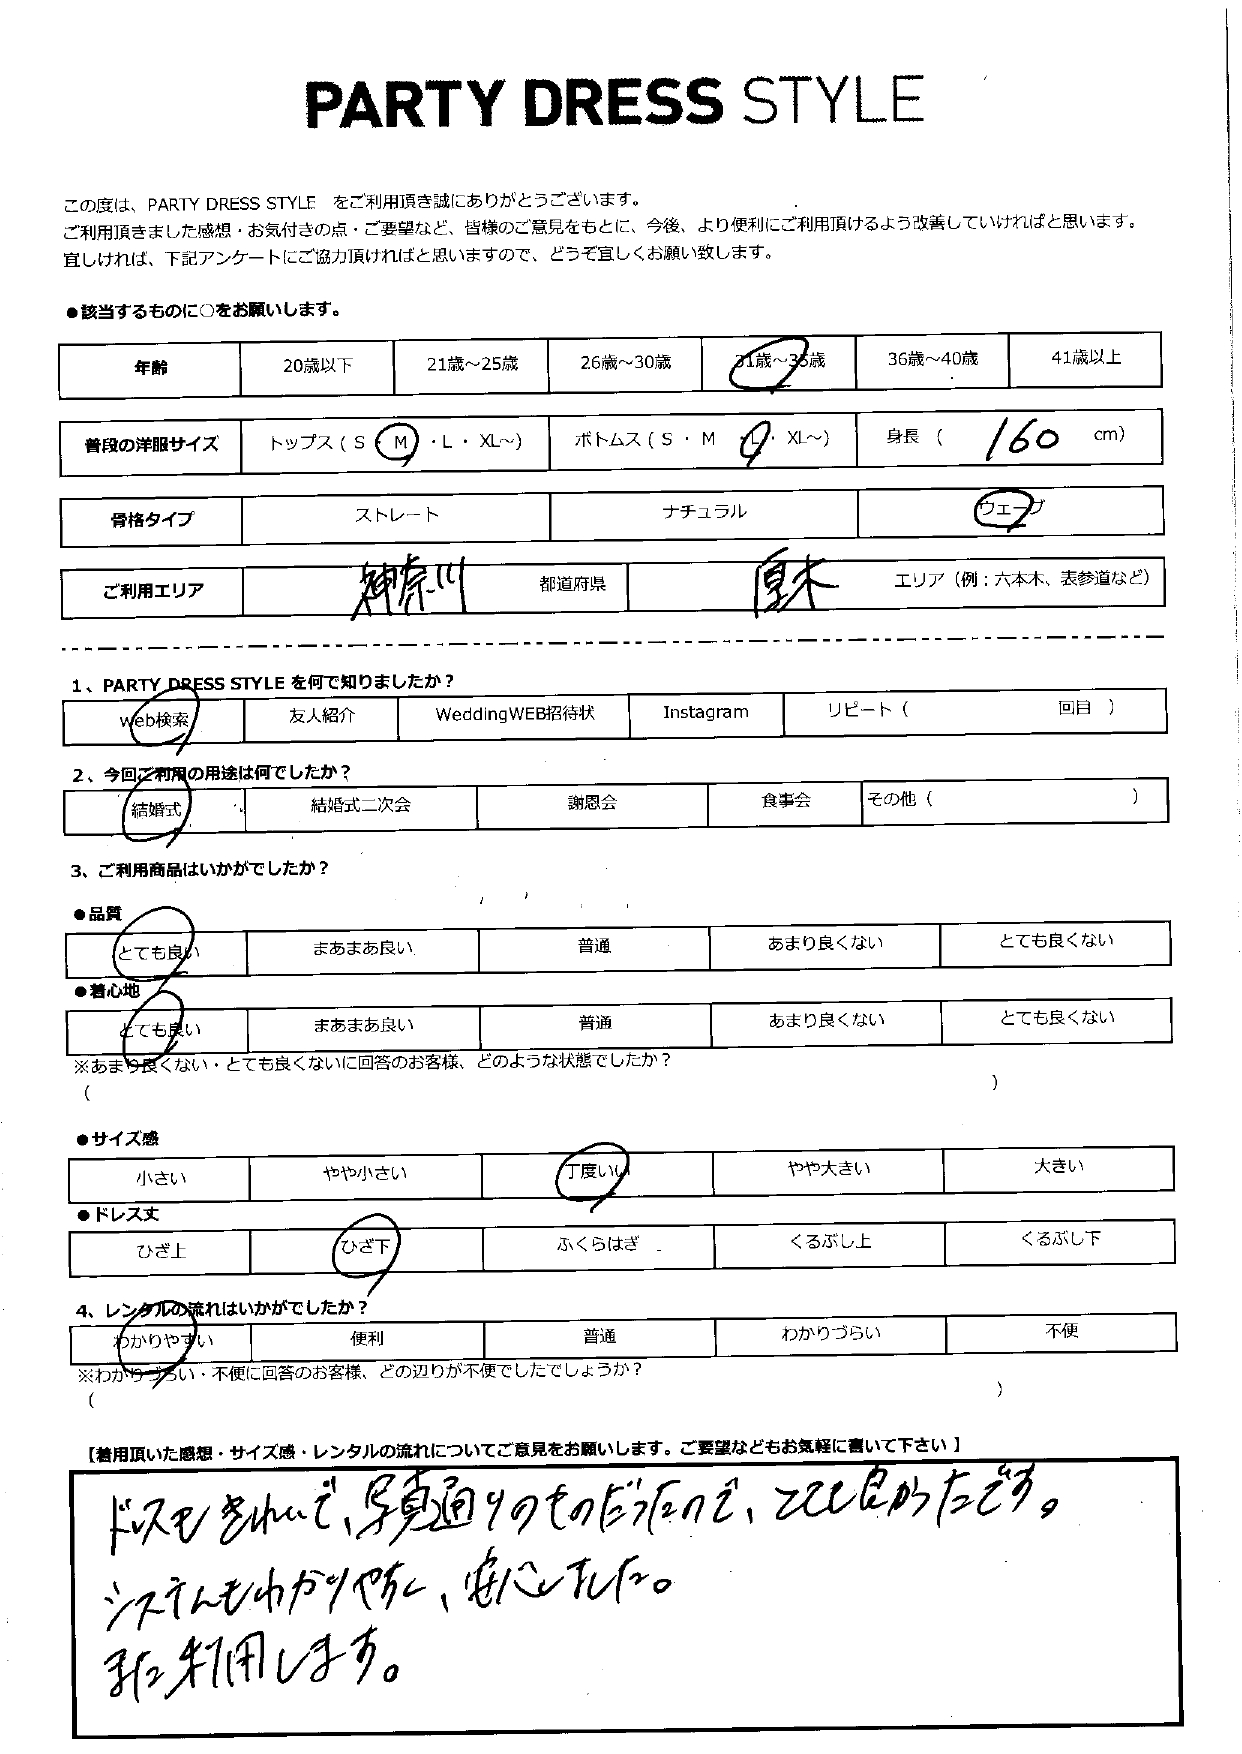 PARTY DRESS STYLE
この度は、PARTY DRESS STYLE をご利用頂き誠にありがとうございます。
ご利用頂きました感想・お気付きの点・ご要望など、皆様のご意見をもとに、今後、より便利にご利用頂けるよう改善していければと思います。
宜しければ、下記アンケートにご協力頂ければと思いますので、どうぞ宜しくお願い致します。
●該当するものに○をお願いします。
年齢 20歳以下 21歳～25歳 26歳～30歳 31歳～35歳 36歳～40歳 41歳以上
普段の洋服サイズ トップス（ S ・ M ・ L ・ XL～） ボトムス（ S ・ M ・ L ・ XL～） 身長 （ 160 cm）
骨格タイプ ストレート ナチュラル ウェーブ
ご利用エリア 神奈川 都道府県 厚木 エリア（例：六本木、表参道など）
1、PARTY DRESS STYLE を何で知りましたか？
Web検索 友人紹介 WeddingWEB招待状 Instagram リピート（ 回目 ）
2、今回ご利用の用途は何でしたか？
結婚式 結婚式二次会 謝恩会 食事会 その他（ ）
3、ご利用商品はいかがでしたか？
●品質
とても良い まあまあ良い 普通 あまり良くない とても良くない
●着心地
とても良い まあまあ良い 普通 あまり良くない とても良くない
※あまり良くない・とても良くないに回答のお客様、どのような状態でしたか？
（ ）
●サイズ感
小さい やや小さい 丁度いい やや大きい 大きい
●ドレス丈
ひざ上 ひざ下 ふくらはぎ くるぶし上 くるぶし下
4、レンタルの流れはいかがでしたか？
わかりやすい 便利 普通 わかりづらい 不便
※わかりづらい・不便に回答のお客様、どの辺りが不便でしたでしょうか？
（ ）
【着用頂いた感想・サイズ感・レンタルの流れについてご意見をお願いします。ご要望などもお気軽に書いて下さい 】
ドレスもきれいで、写真通りのものだったので、とても良かったです。
システムもわかりやすく、安心しました。
また利用します。